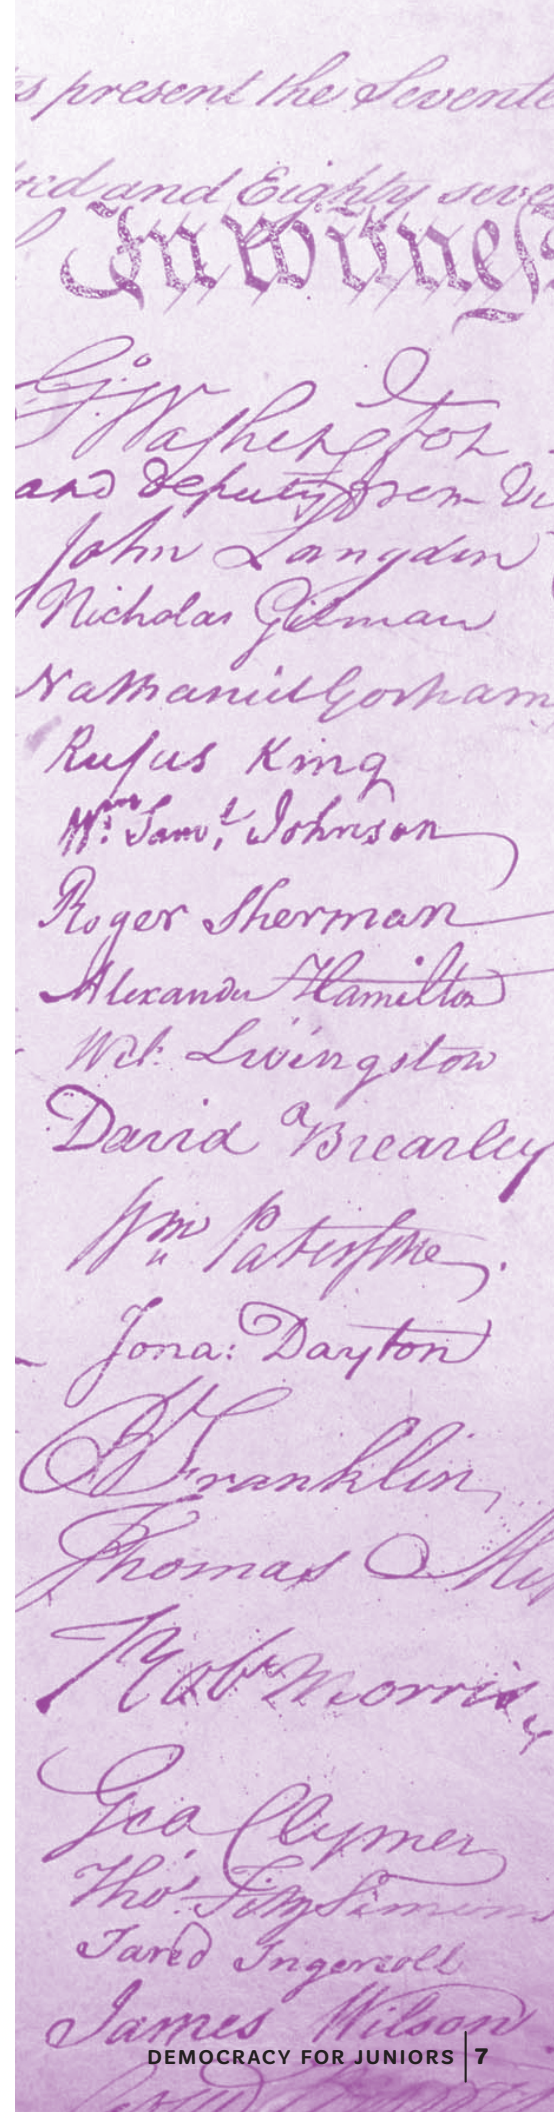 present the Sevente
and Eighty seve
In witness
Go: Washington
and deputy from Vi
John Langdon
Nicholas Gilman
Nathaniel Gorham
Rufus King
Wm: Saml. Johnson
Roger Sherman
Alexander Hamilton
Wil: Livingston
David Brearley
Wm Paterson.
Jona: Dayton
B Franklin
Thomas Mif
Robt Morris
Geo Clymer
Tho. FitzSimons
Jared Ingersoll
James Wilson
DEMOCRACY FOR JUNIORS | 7